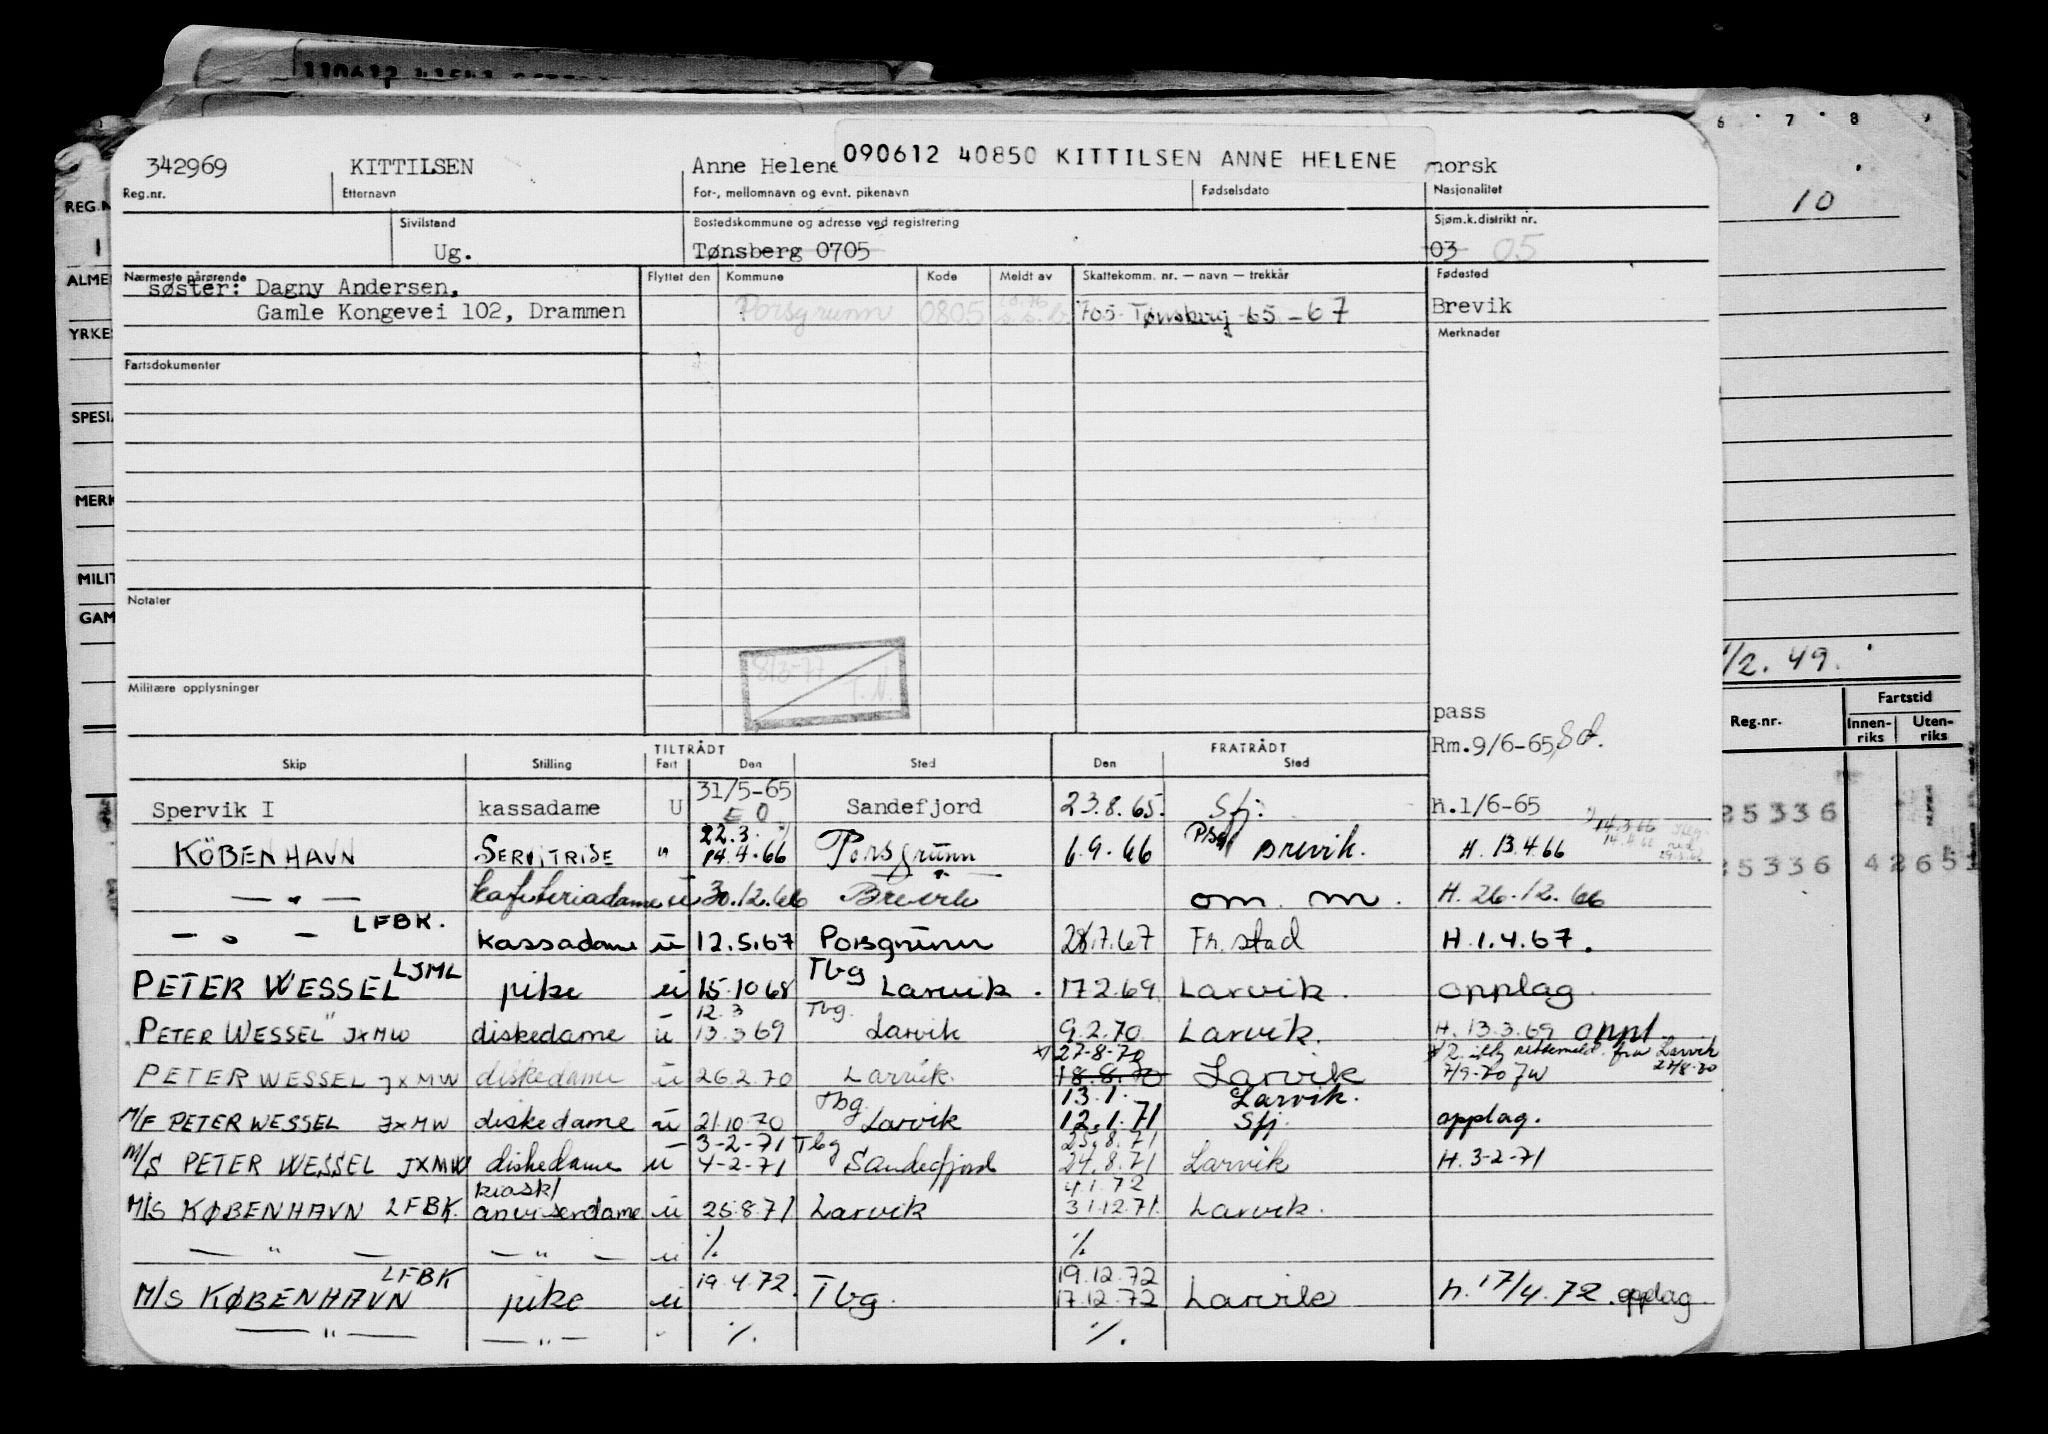 110612
6 7 8
090612 40850 KITTILSEN ANNE HELENE
342969 KITTILSEN Anne Helene norsk
Reg.nr. Etternavn For-, mellomnavn og evnt. pikenavn Fødselsdato Nasjonalitet
10
Sivilstand Bostedskommune og adresse ved registrering Sjøm.k.distrikt nr.
Ug. Tønsberg 0705 03 05
Nærmeste pårørende Flyttet den Kommune Kode Meldt av Skattekomm. nr. — navn — trekkår Fødested
søster: Dagny Andersen,
Gamle Kongevei 102, Drammen Porsgrunn 0805 705 Tønsberg 65-67 Brevik
Merknader
Fartsdokumenter
REG.N
ALME
YRKE
SPESI
MERK
MILIT
GAM
Notater
8/3-77 T.N.
Militære opplysninger
1/2.49.
pass
Rm.9/6-65
Reg.nr. Fartstid
Innen-riks Uten-riks
TILTRÅDT FRATRÅDT
Skip Stilling Fart Den Sted Den Sted
Spervik I kassadame U 31/5-65 EO Sandefjord 23.8.65. Sfj. h.1/6-65
25336
KÖBENHAVN SERVITRISE " 22.3. 14.4.66 Porsgrunn 6.9.66 Brevik. H. 13.4.66
5336 4265
— " — kafeteriadame u 30.12.66 Brevik om. m. H. 26.12.66
— " — LFBK. kassadame u 12.5.67 Porsgrunn 28.7.67 Fr.stad H.1.4.67.
PETER WESSEL LJML pike u 15.10.68 Tbg Larvik. 17.2.69 Larvik. opplag.
PETER WESSEL JXMW diskedame u 12.3 13.3.69 Tbg. Larvik 9.2.70 Larvik. H. 13.3.69 oppl.
PETER WESSEL JXMW diskedame u 26.2.70 Larvik. x) 27-8-70 18.8.70 Larvik fra Larvik 7/9-70 JW
M/F PETER WESSEL JXMW diskedame u 21.10.70 Tbg. Larvik 13.1. 12.1.71 Larvik. Sfj. opplag.
M/S PETER WESSEL JXMW diskedame u 3-2-71 4-2-71 Tbg Sandefjord 25.8.71 24.8.71 Larvik H. 3-2-71
M/S KØBENHAVN LFBK. kiosk/ anviserdame u 25.8.71 Larvik 4.1.72 31.12.71. Larvik.
— " — — " — u % %
M/S KØBENHAVN LFBK pike u 19.4.72. Tbg. 19.12.72 17.12.72 Larvik h. 17/4.72. opplag.
— " — — " — " %. %.